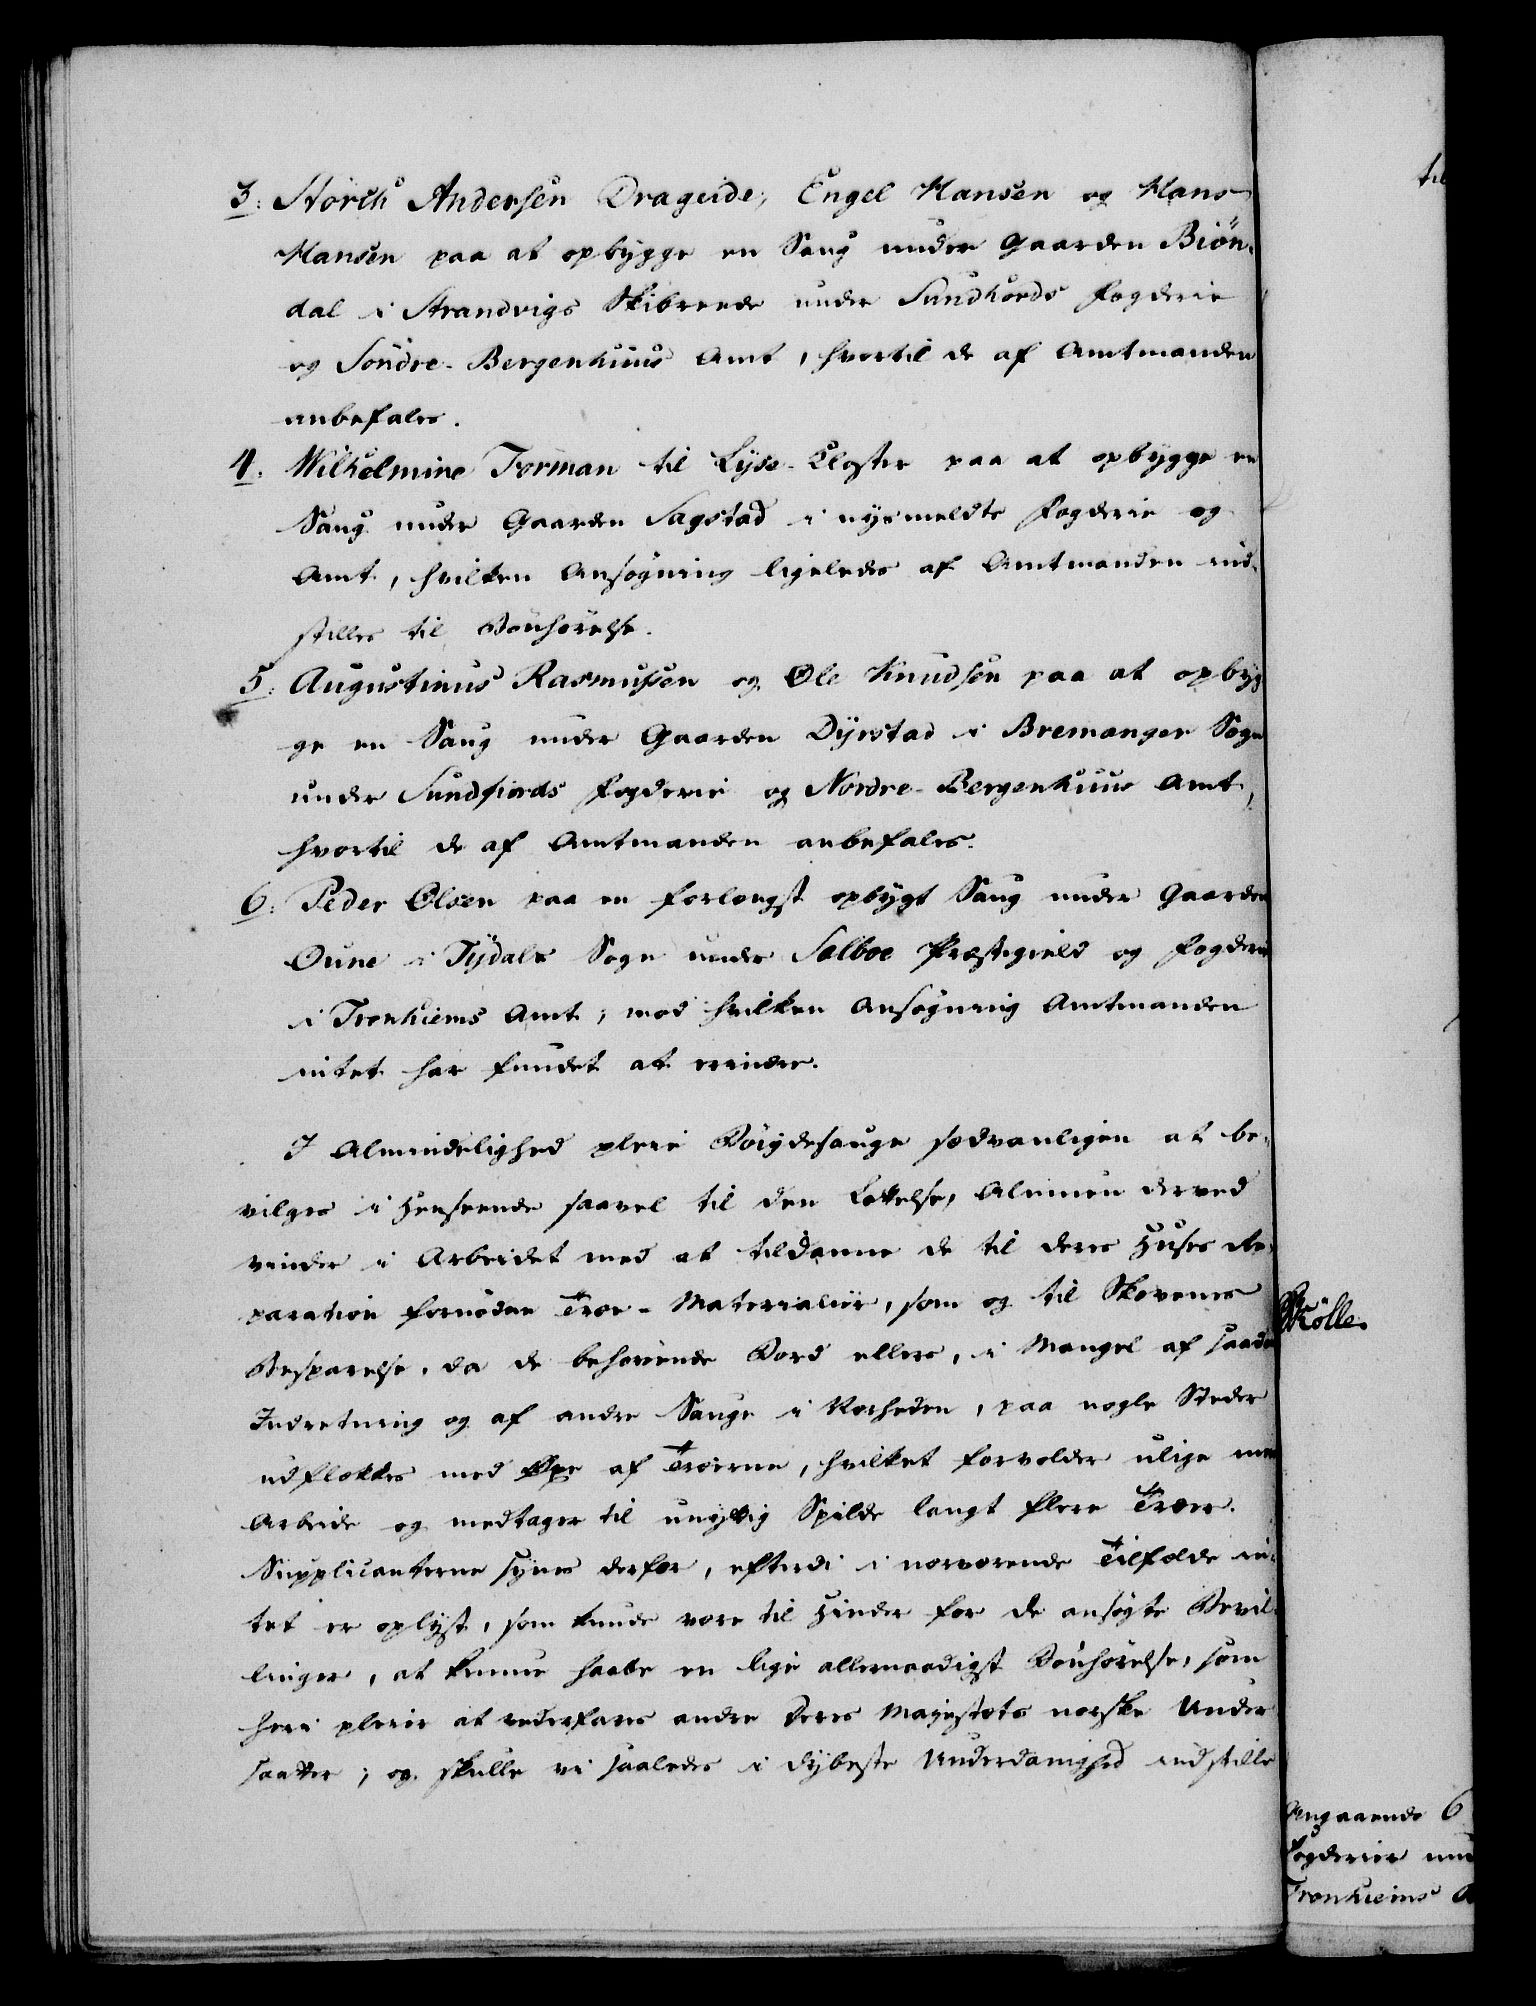 3: Störch Andersen Drageide, Engel Hansen og Hans
Hansen paa at opbygge en Saug under Gaarden Biön-
dal i Strandvigs Skibrende under Sundhords Fogderie
og Söndre-Bergenhuus Amt, hvortil de af Amtmanden
anbefales.
4. Wilhelmine Forman til Lyse-Closter paa at opbygge en
Saug under Gaarden Sagstad i nysmeldte Fogderie og
Amt, hvilken Ansøgning ligeledes af Amtmanden ind-
stilles til Bønhørelse.
5. Augustinus Rasmussen og Ole Knudsen paa at opbyg-
ge en Saug under Gaarden Dyrstad i Bremanger Sogn
under Sundfiords Fogderie og Nordre-Bergenhuus Amt,
hvortil de af Amtmanden anbefales.
6. Peder Olsen paa en forlængst opbygt Saug under Gaarden
Oune i Tydals Sogn under Selboe Præstegield og Fogderie
i Tronhiems Amt, mod hvilken Ansøgning Amtmanden
intet har fundet at erindre.
I Almindelighed pleie Bøigdesauge sædvanligen at be-
vilges i Henseende saavel til den Lettelse, Almuen derved
vinder i Arbeidet med at tildanne de til deres Huses Re-
paration fornødne Træe-Materialier, som og til Skovenes
Besparelse, da de behøvende Bord ellers, i Mangel af saadan
Indretning og af andre Sauge i Nærheden, paa nogle Steder
udflækkes med Øxe af Træerne, hvilket forvolder ulige meer
Arbeide og medtager til unyttig Spilde langt flere Træer.
Supplicanterne synes derfor, efterdi i nærværende Tilfælde in-
tet er oplyst, som kunde være til Hinder for de ansøgte Bevil-
linger, at kunne haabe en lige allernaadigst Bønhørelse, som
heri pleier at vederfares andre Deres Majestæts norske Under-
saatter; og skulle vi saaledes i dybeste Underdanighed indstille
til
Angaaende 6
Fogderier und
Tronhiems A